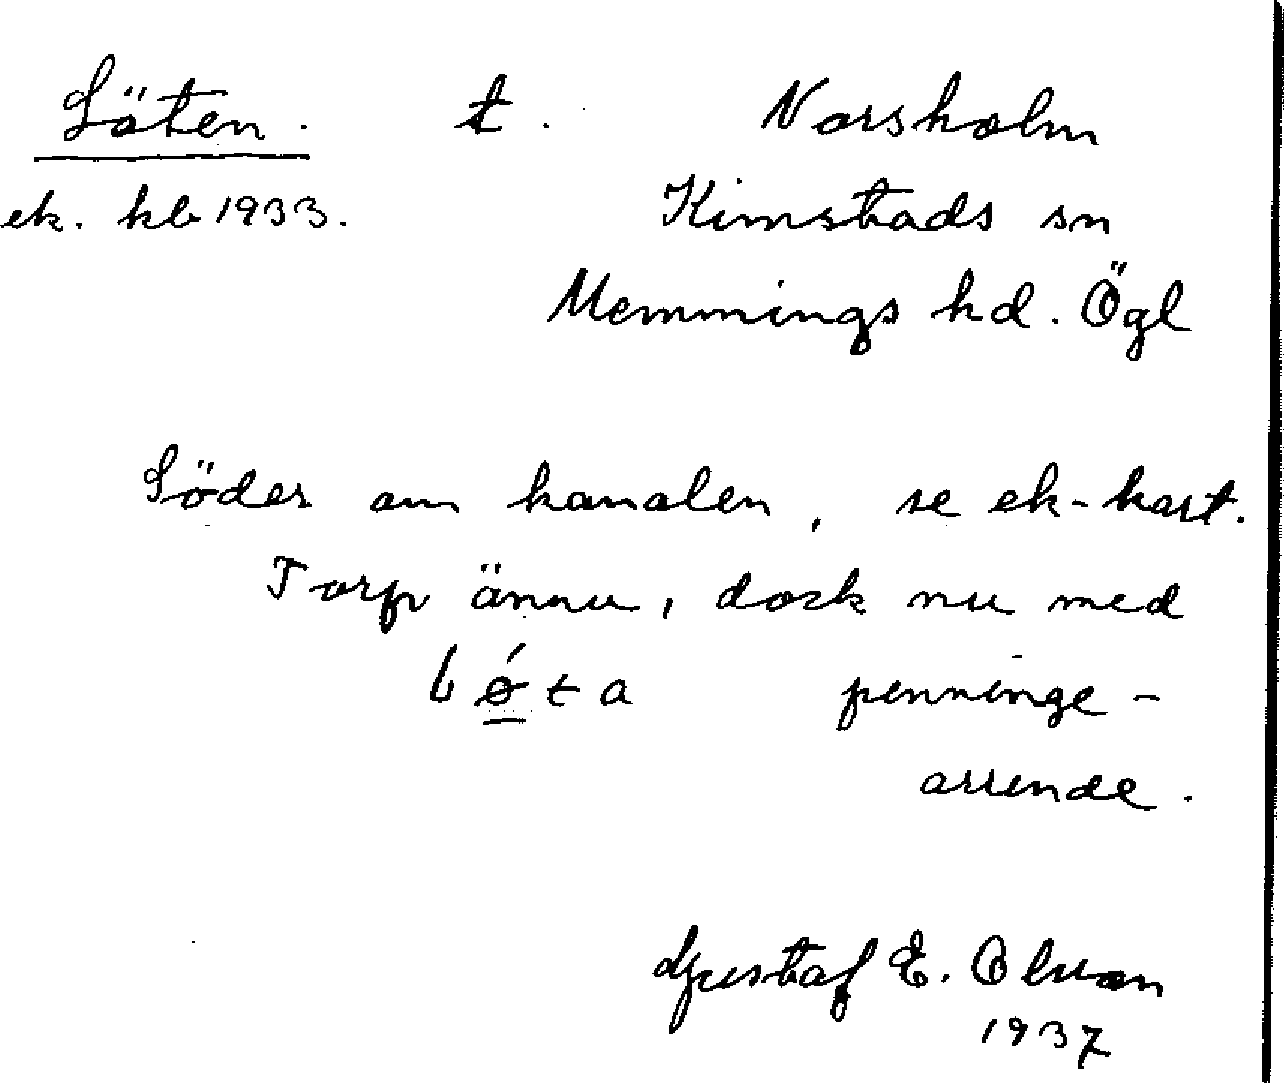 Löten. t. Norsholm
ek. kb 1933. Kimstads sn
Memmings hd. Ögl
Söder om kanalen, se ek-kart.
Torp ännu, dock nu med
lǿta penninge-
arrende.
Gustaf E. Olsson
1937